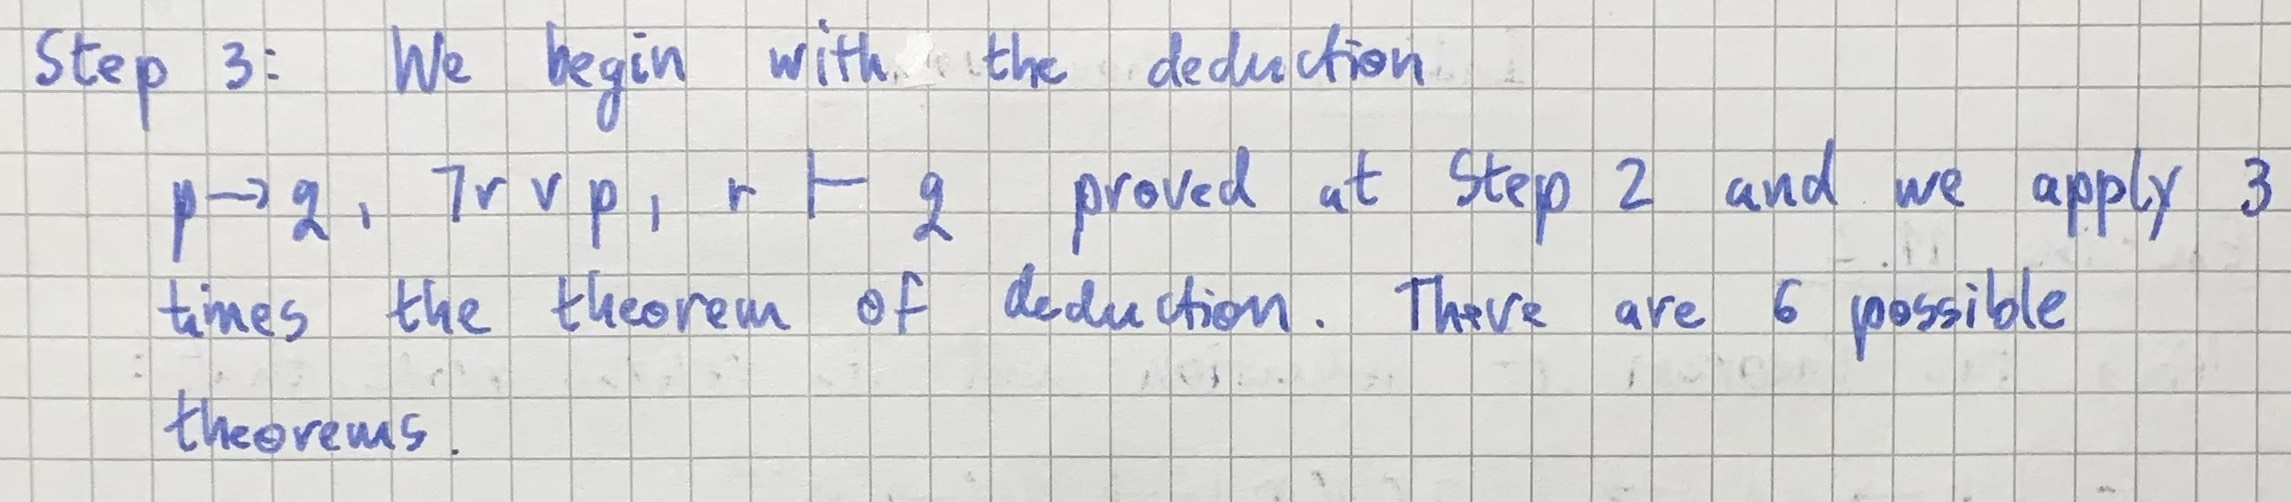 Step 3: We begin with the deduction
p→q, ¬r ∨ p, r ⊢ q proved at Step 2 and we apply 3
times the theorem of deduction. There are 6 possible
theorems.